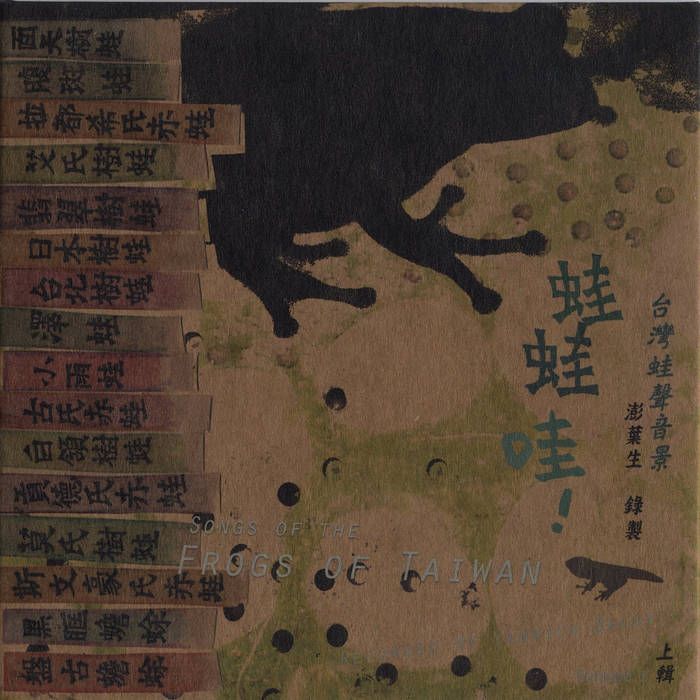 面天樹蛙
腹斑蛙
拉都希氏赤蛙
艾氏樹蛙
翡翠樹蛙
日本樹蛙
台北樹蛙
澤蛙
小雨蛙
古氏赤蛙
白領樹蛙
貢德氏赤蛙
莫氏樹蛙
斯文豪氏赤蛙
黑眶蟾蜍
盤古蟾蜍
台灣蛙聲音景
澎葉生 錄製
蛙蛙哇!
SONGS OF THE
FROGS OF TAIWAN
RECORDED BY YANNICK DAUBY
上輯